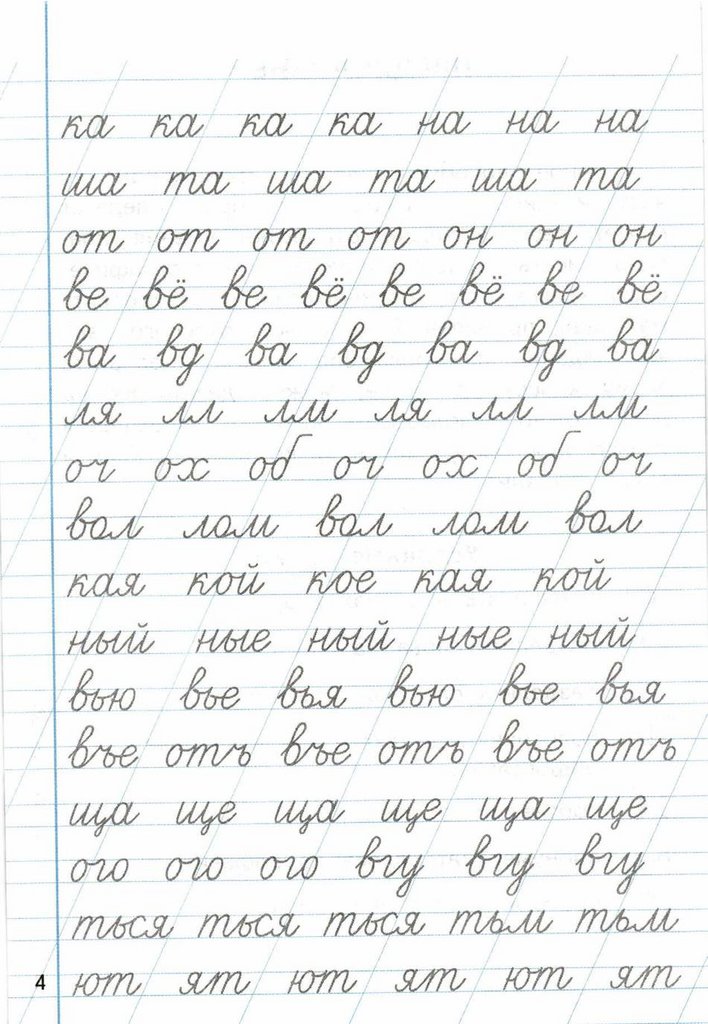 ка ка ка ка на на на
ша та ша та ша та
от от от от он он он
ве вё ве вё ве вё ве вё
ва вд ва вд ва вд ва
ля лл лм ля лл лм
оч ох об оч ох об оч
вол лом вол лом вол
кая кой кое кая кой
ный ные ный ные ный
вью вье вья вью вье вья
въе отъ въе отъ въе отъ
ща ще ща ще ща ще
ого ого ого вгу вгу вгу
ться ться ться тьм тьм
4 ют ят ют ят ют ят